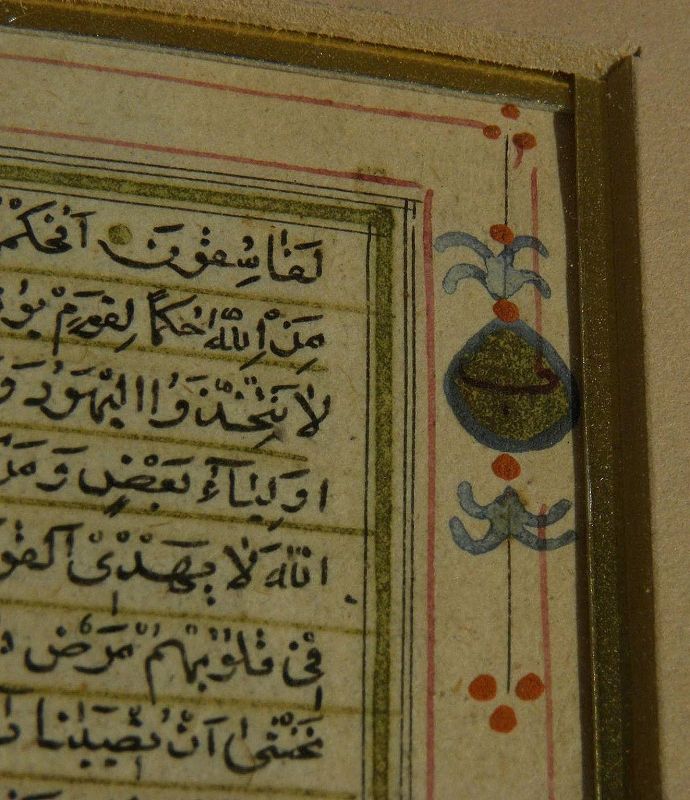 لَفَاسِقُونَ اَفَحُكْمَ
مِنَ اللّٰهِ حُكْمًا لِقَوْمٍ يُو
لَا تَتَّخِذُوا الْيَهُودَ وَ
اَوْلِيَاءُ بَعْضٍ وَمَنْ
اللّٰهَ لَا يَهْدِى الْقَوْ
فِى قُلُوبِهِمْ مَرَضٌ
نَخْشٰى اَنْ تُصِيبَنَا